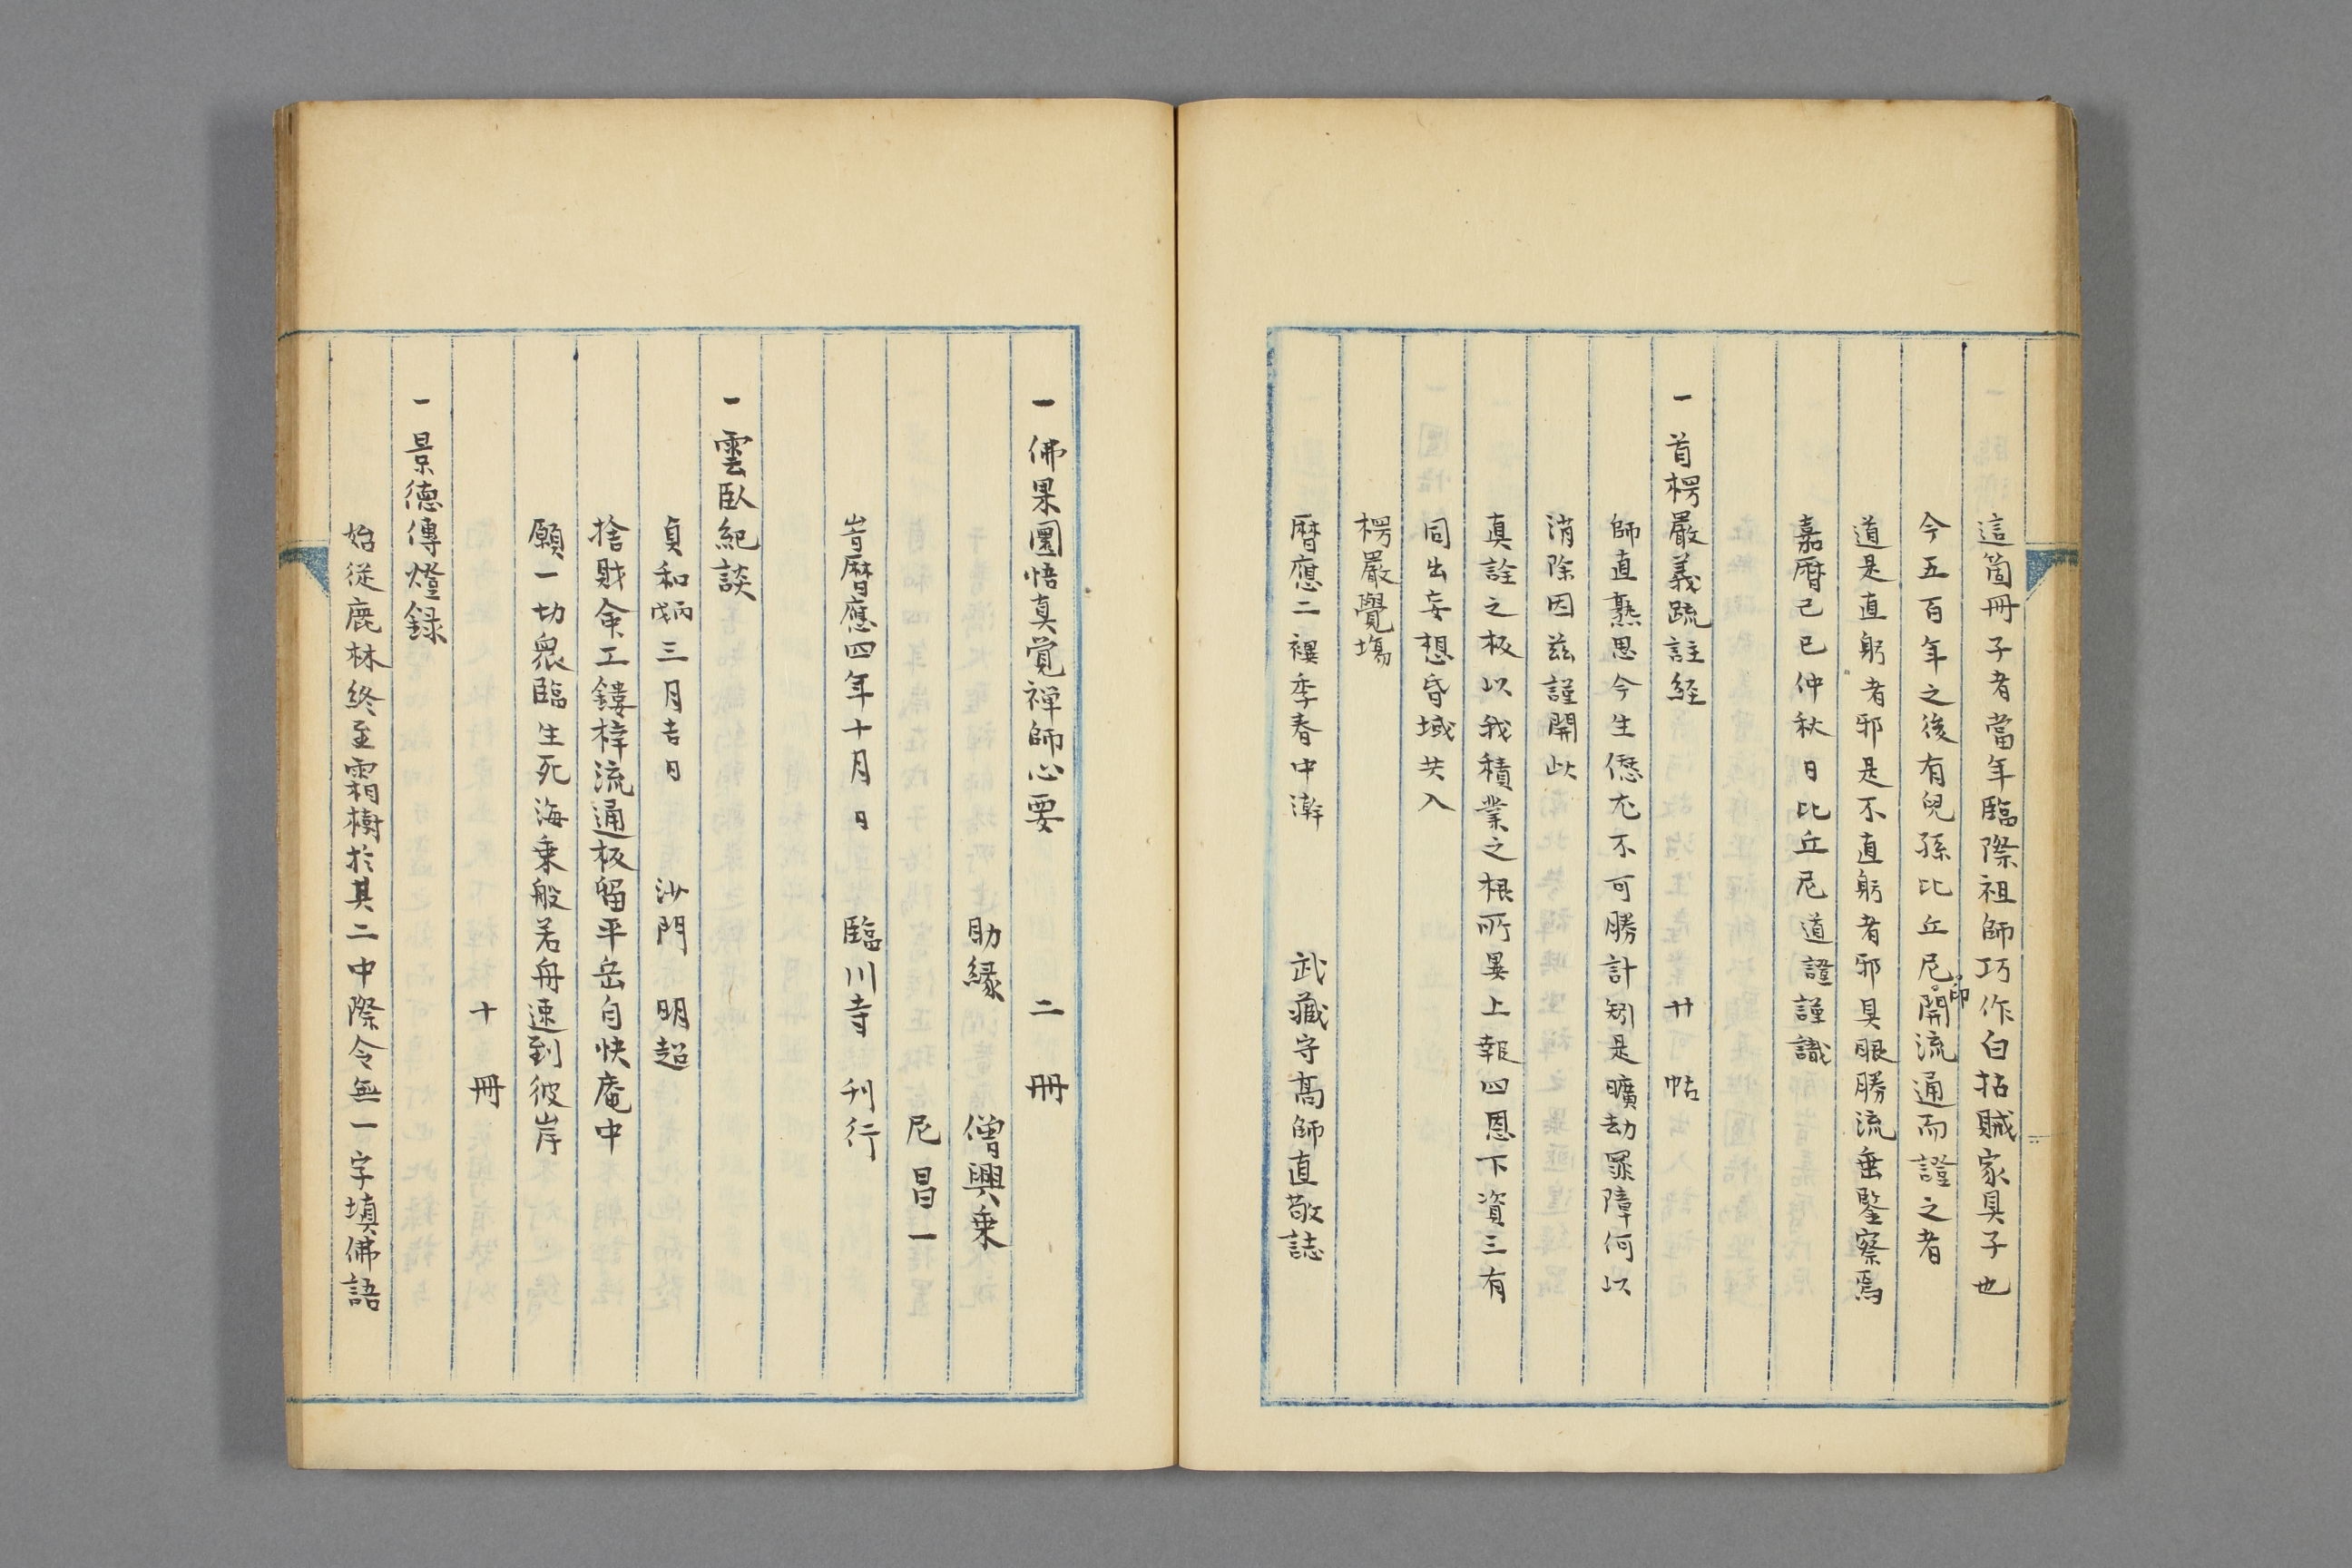 這箇冊子者當年臨際祖師巧作白拈賊家具子也
今五百年之後有兒孫比丘尼印開流通而證之者
道是直躬者邪是不直躬者邪具眼勝流垂鑒察焉
嘉暦己巳仲秋日比丘尼道證謹識
一首楞嚴義疏註経 廿帖
師直熟思今生愆尤不可勝計矧是曠劫罪障何以
消除因茲謹開此
真詮之板以我積業之根所畢上報四恩下資三有
同出妄想昏域共入
楞嚴覺塲
暦應二禩季春中澣 武藏守髙師直敬誌
一佛果圜悟真覺禅師心要 二冊
助縁 僧興乗
尼昌一
旹暦應四年十月日 臨川寺刊行
一雲臥紀談
貞和丙戌三月吉日 沙門 明超
捨財命工鏤梓流通板留平岳自快庵中
願一切衆臨生死海乗般若舟速到彼岸
十冊
一景徳傳燈録
始従鹿林終至霜樹於其二中際令無一字填佛語